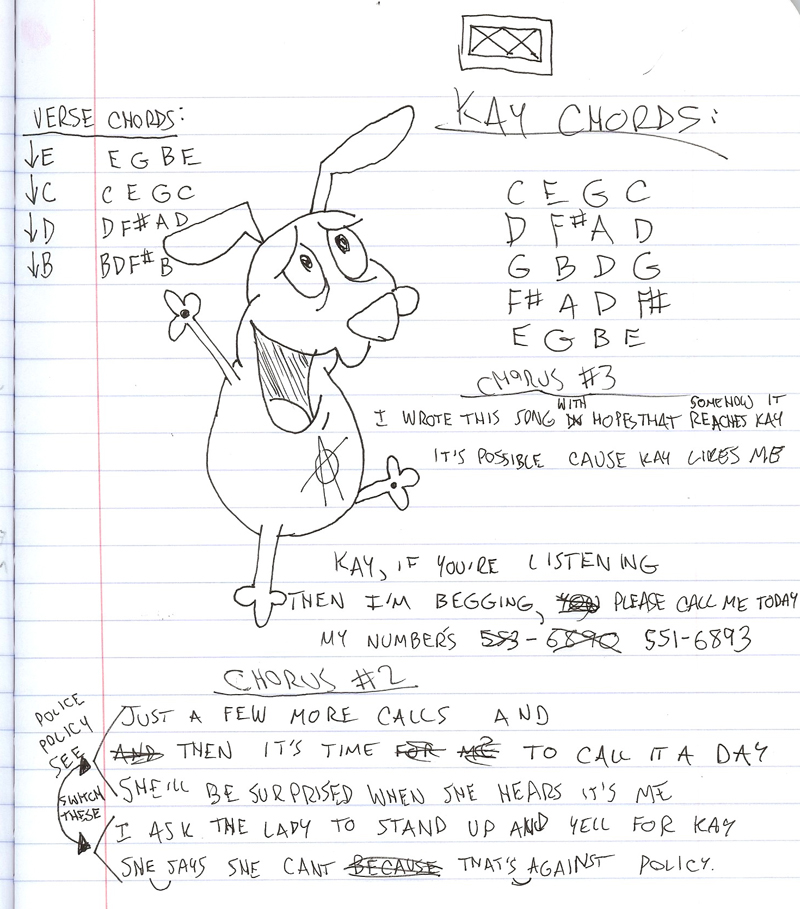 VERSE CHORDS:
↓E E G B E
↓C C E G C
↓D D F# A D
↓B B D F# B
KAY CHORDS:
C E G C
D F# A D
G B D G
F# A D F#
E G B E
CHORUS #3
I WROTE THIS SONG WITH HOPES THAT SOMEHOW IT REACHES KAY
IT'S POSSIBLE CAUSE KAY LIKES ME
KAY, IF YOU'RE LISTENING
THEN I'M BEGGING, YOU PLEASE CALL ME TODAY
MY NUMBER'S 553-6890 551-6893
CHORUS #2
POLICE
POLICY
SEE
SWITCH
THESE
JUST A FEW MORE CALLS AND
AND THEN IT'S TIME FOR ME TO CALL IT A DAY
SHE'LL BE SURPRISED WHEN SHE HEARS IT'S ME
I ASK THE LADY TO STAND UP AND YELL FOR KAY
SHE SAYS SHE CANT BECAUSE THAT'S AGAINST POLICY.